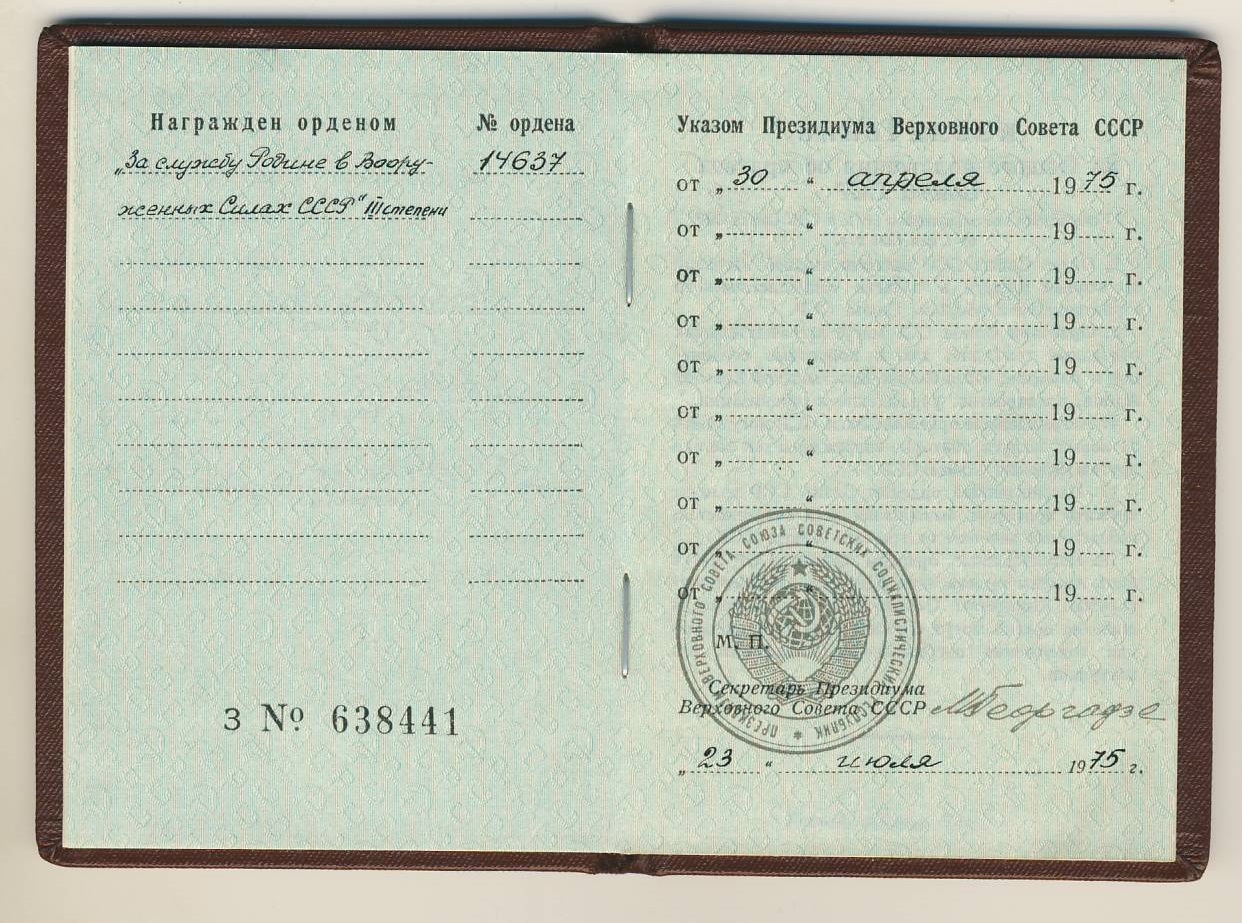 Награжден орденом № ордена
„За службу Родине в Воору- 14637
женных Силах СССР“ III степени
З № 638441
Указом Президиума Верховного Совета СССР
от „ 30 “ апреля 1975 г.
от „ “ 19 г.
от „ “ 19 г.
от „ “ 19 г.
от „ “ 19 г.
от „ “ 19 г.
от „ “ 19 г.
от „ “ 19 г.
от „ “ 19 г.
от „ “ 19 г.
ПРЕЗИДИУМ ВЕРХОВНОГО СОВЕТА СОЮЗА СОВЕТСКИХ СОЦИАЛИСТИЧЕСКИХ РЕСПУБЛИК *
М. П.
Секретарь Президиума
Верховного Совета СССР МГеоргадзе
„ 23 “ июля 1975 г.